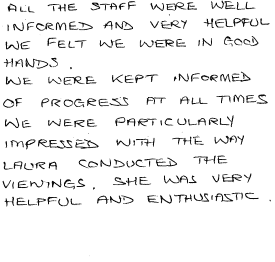 ALL THE STAFF WERE WELL
INFORMED AND VERY HELPFUL
WE FELT WE WERE IN GOOD
HANDS.
WE WERE KEPT INFORMED
OF PROGRESS AT ALL TIMES
WE WERE PARTICULARLY
IMPRESSED WITH THE WAY
LAURA CONDUCTED THE
VIEWINGS. SHE WAS VERY
HELPFUL AND ENTHUSIASTIC.